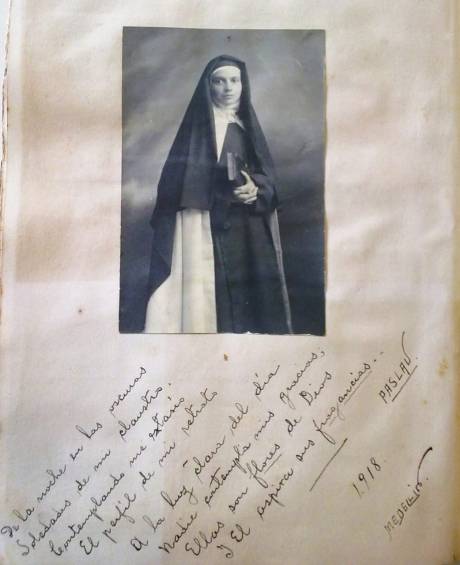 De la noche en las oscuras
Soledades de mi claustro.
Contemplando me extasio
El perfil de mi retrato
A la luz clara del día
Nadie contempla mis gracias;
Ellas son flores de Dios
Y El aspira sus fragancias...
PASLAU.
1918.
MEDELLIN